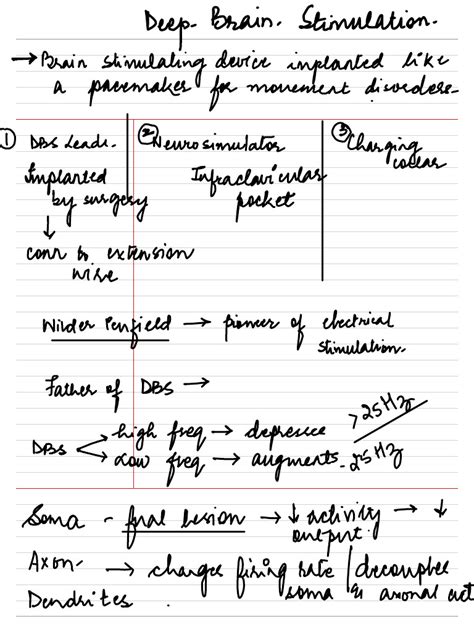 Deep Brain Stimulation.
→ Brain stimulating device implanted like
a pacemaker for movement disorders
① DBS Leads.
Implanted
by surgery
↓
conn to extension
wire
② Neurosimulator
Infraclavicular
pocket
③ Charging
Wilder Penfield → pioneer of electrical
stimulation.
Father of DBS →
DBS
high freq → depresses >25Hz
Low freq → augments - 25Hz
Soma - → ↓ activity → ↓
output
Axon → changes firing rate / decouples
Dendrites. soma & axonal act